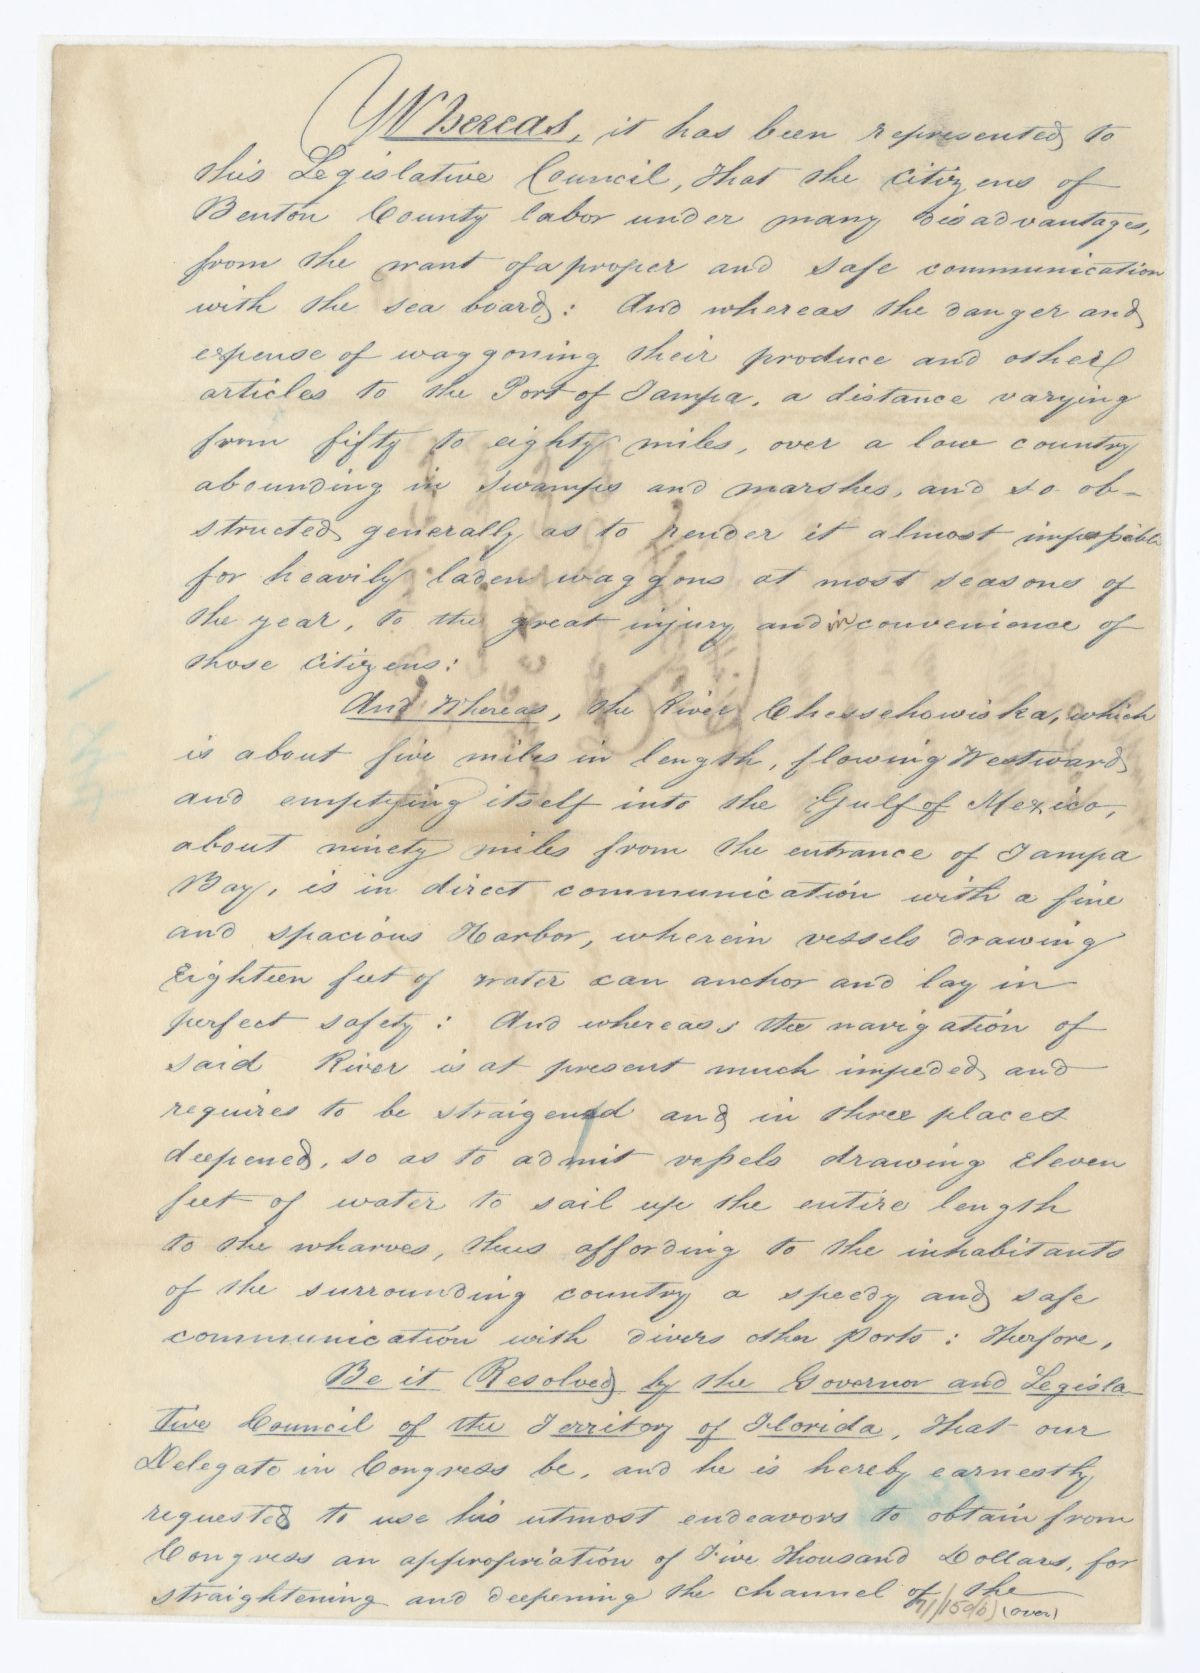 Whereas, it has been represented to
this Legislative Council, that the citizens of
Benton County labor under many disadvantages,
from the want of a proper and safe communication
with the sea board: And whereas the danger and
expense of waggoning their produce and other
articles to the Port of Tampa, a distance varying
from fifty to eighty miles, over a low country
abounding in swamps and marshes, and so ob-
structed generally as to render it almost impossible
for heavily laden waggons at most seasons of
the year, to the great injury and inconvenience of
those citizens:
And Whereas, the River Chessehowiska, which
is about five miles in length, flowing Westward
and emptying itself into the Gulf of Mexico,
about ninety miles from the entrance of Tampa
Bay, is in direct communication with a fine
and spacious Harbor, wherein vessels drawing
Eighteen feet of water can anchor and lay in
perfect safety: And whereas, the navigation of
said River is at present much impeded and
requires to be straigened and in three places
deepened, so as to admit vessels drawing Eleven
feet of water to sail up the entire length
to the wharves, thus affording to the inhabitants
of the surrounding country a speedy and safe
communication with divers other Ports: Therfore,
Be it Resolved by the Governor and Legisla-
tive Council of the Territory of Florida, That our
Delegate in Congress be, and he is hereby earnestly
requested to use his utmost endeavors to obtain from
Congress an appropriation of Five Thousand Dollars, for
straightening and deepening the channel of the
(over)